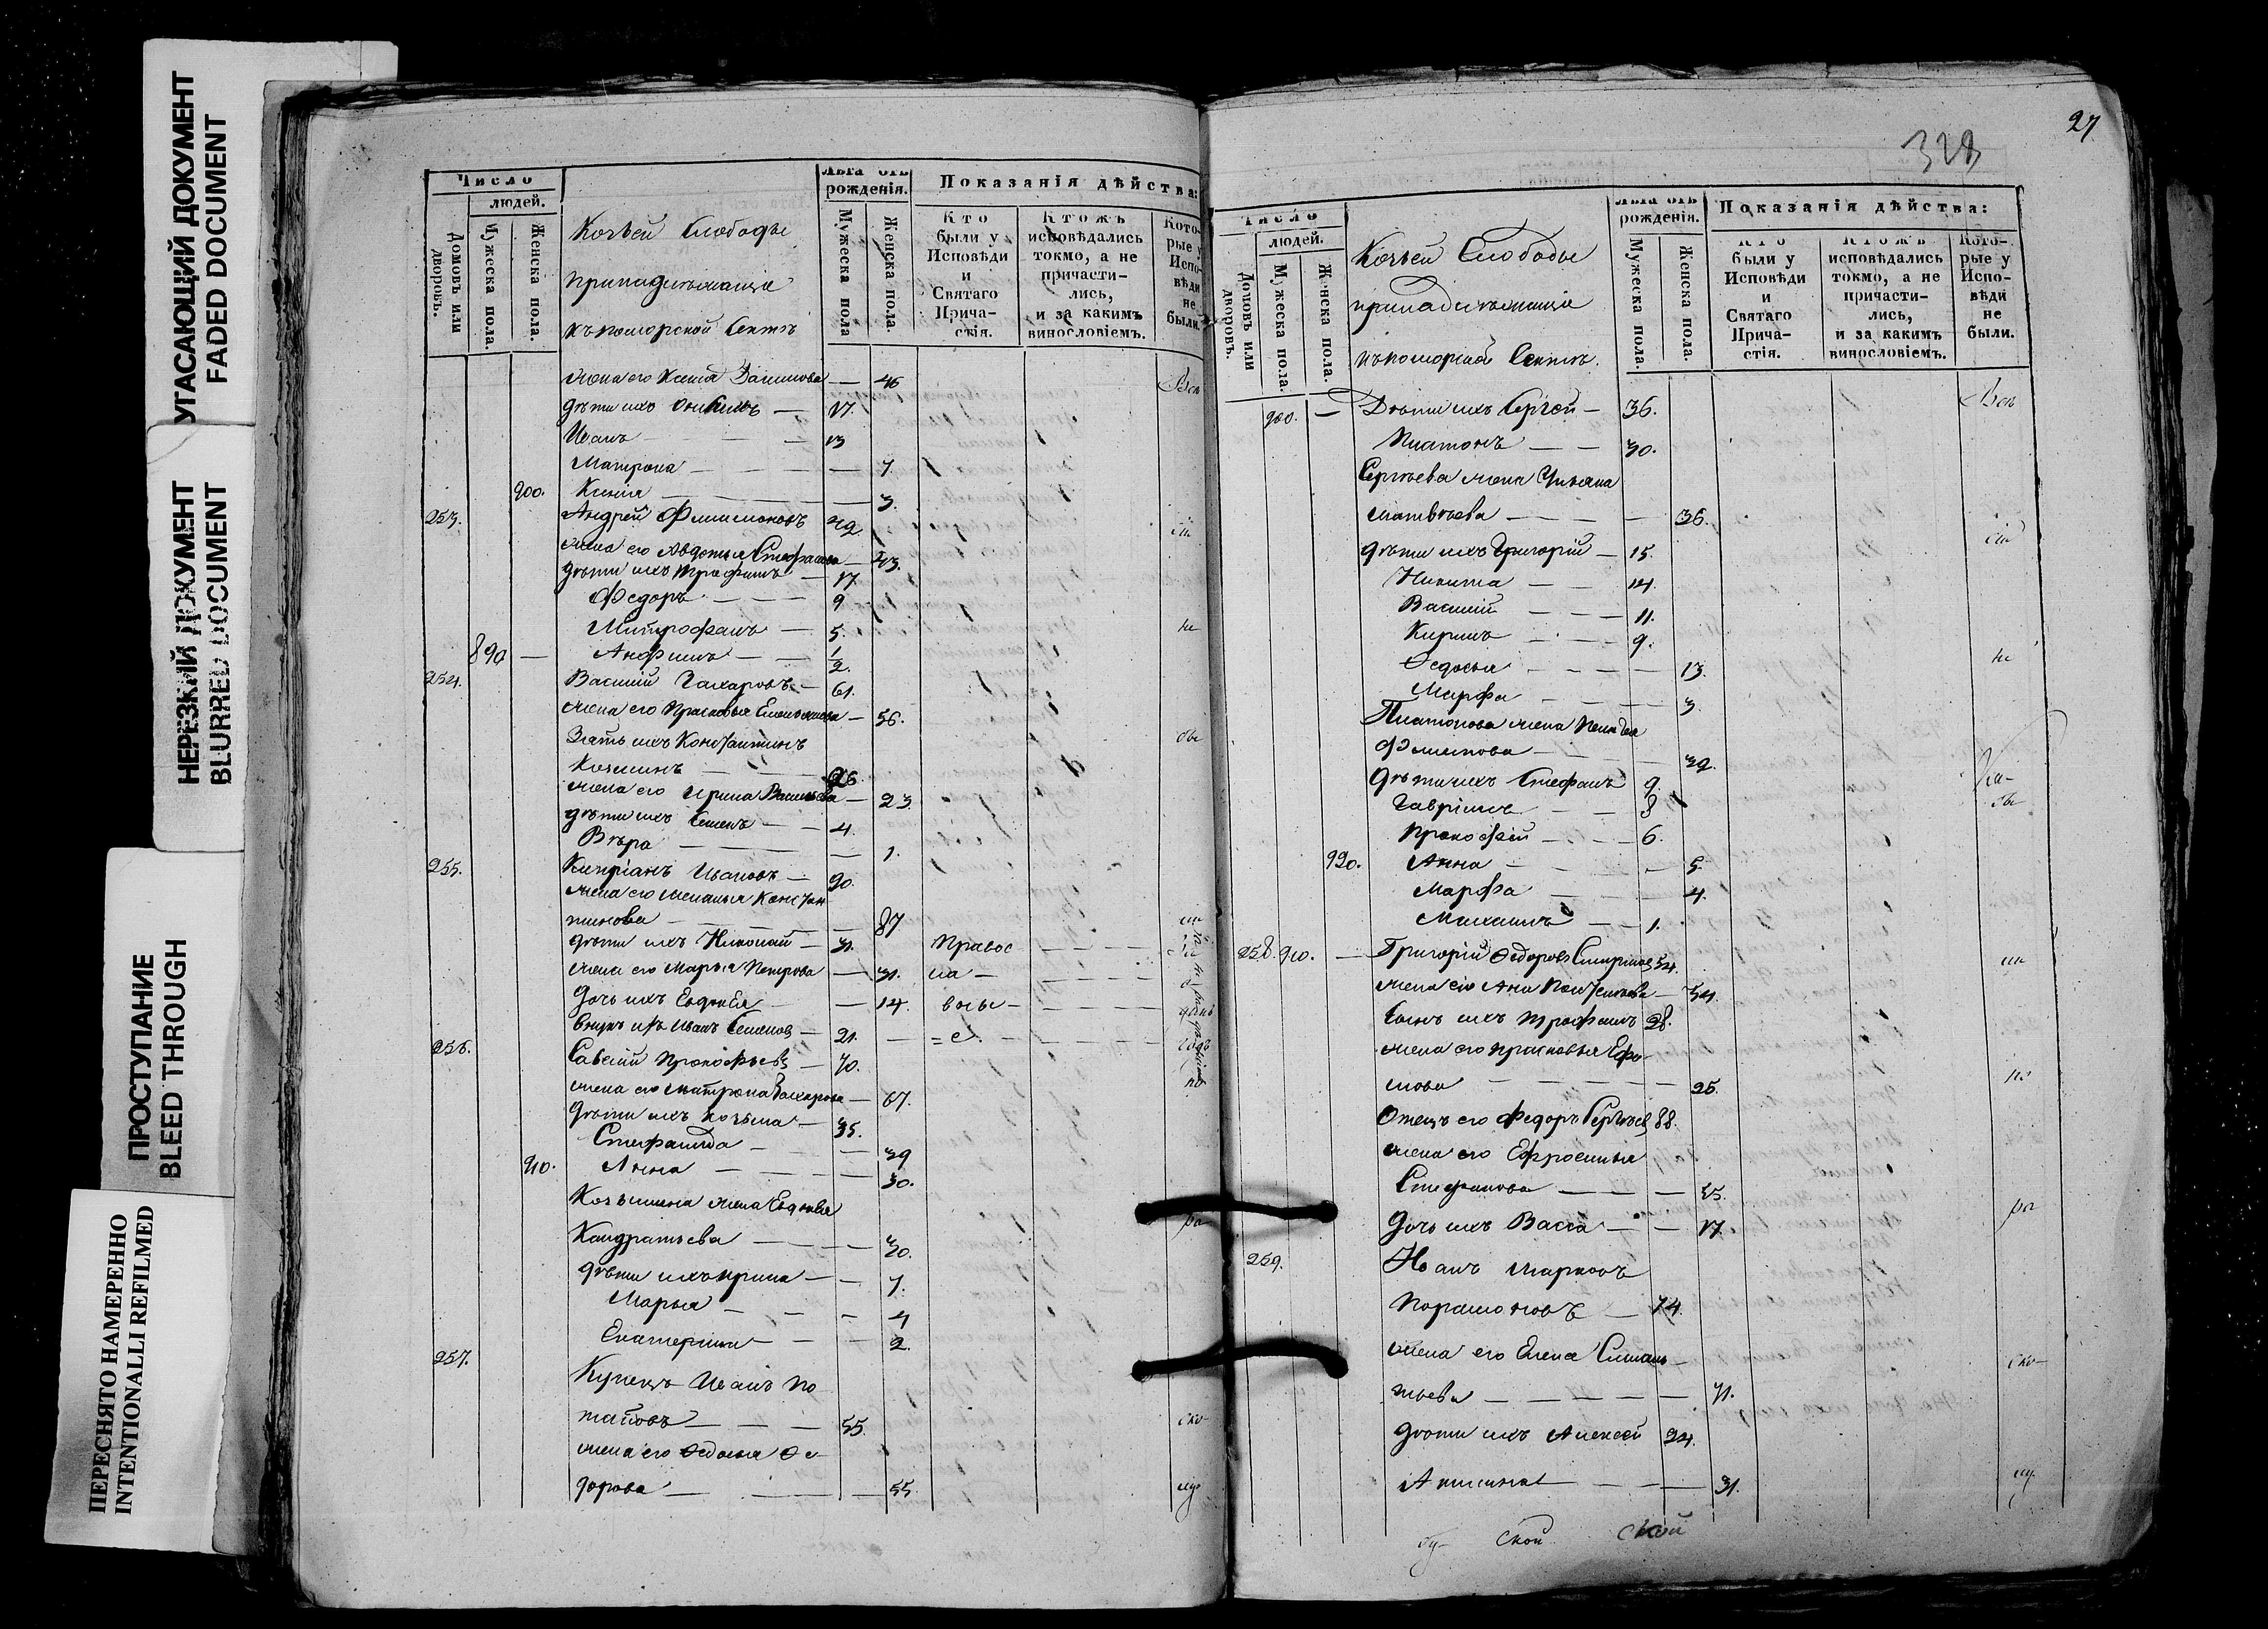 УГАСАЮЩИЙ ДОКУМЕНТ
FADED DOCUMENT
НЕРЕЗКИЙ ДОКУМЕНТ
BLURRED DOCUMENT
ПРОСТУПАНИЕ
BLEED THROUGH
ПЕРЕСНЯТО НАМЕРЕННО
INTENTIONALLI REFILMED
Число
людей.
Домовъ или дворовъ.
Мужеска пола.
Женска пола.
Козьей Слободы
принадлежащіе
къ поморской Сектѣ
Лѣта отъ рожденія.
Мужеска пола
Женска пола.
Показанія дѣйства:
Кто были у Исповѣди и Святаго Прича- стія.
Ктожъ исповѣдались токмо, а не причасти- лись, и за какимъ винословіемъ.
Кото- рые у Испо- вѣди не были.
жена его Ксенія — 46 Всѣ
дѣти ихъ — 17.
Иванъ — 13
Матрона — 7.
900. Ксенія — 3.
253. Андрей Филимоновъ 42.
жена его Авдотья Стефанова — 43.
дѣти ихъ Трофимъ — 17.
Федоръ — 9
Митрофанъ — 5. не
890 — Анфимъ — 1/2.
254. Василій Захаровъ — 61.
жена его Прасковья — 56.
Зять ихъ Константинъ
Козминъ — 26
жена его Ирина Васильева — 23
дѣти ихъ Семенъ — 4.
Вѣра — 1.
255. Кипріанъ Ивановъ — 90.
жена его Меланья Констан
тинова — 87
дѣти ихъ Николай — 31. Правос
жена его Марья Петрова — 31. ла —
дочь ихъ Евдокія — 14.
внукъ ихъ Иванъ Семеновъ — 21.
256. Савелій Прокофьевъ — 70.
жена его Матрона Захарова — 67.
дѣти ихъ Козьма — 35.
Стефанида — 39
910. Анна — 30.
Козьмина жена Евдокія
Кондратьева — 30.
дѣти ихъ Ирина — 7.
Марья — 4
Екатерина — 2.
257. Купецъ Иванъ По
таповъ — 55. ско
жена его Федосья Фе
дорова — 55.
27
328
Число
людей.
Домовъ или дворовъ.
Мужеска пола.
Женска пола.
Козьей Слободы
принадлежащіе
къ поморской Сектѣ.
Лѣта отъ рожденія.
Мужеска пола.
Женска пола.
Показанія дѣйства:
Кто были у Исповѣди и Святаго Прича- стія.
Ктожъ исповѣдались токмо, а не причасти- лись, и за какимъ винословіемъ.
Кото- рые у Испо- вѣди не были.
900. — Дѣти ихъ Сергей — 36. Всѣ
Платонъ — 30.
Сергѣева жена Ульяна
Матвѣева — 36.
дѣти ихъ Григорій — 15.
Никита — 14.
Василій — 11.
Кирилъ — 9.
Федосья — 13. не
Марфа — 3
Платонова жена Пелагея
Филипова — 32.
дѣти ихъ Стефанъ 9.
Гавріилъ — 8
Прокофій — 6.
920. Анна — 5.
Марфа — 4.
Михаилъ — 1.
258. 910. — Григорій Федоровъ Смирновъ 54.
жена его Анна — 54.
Сынъ ихъ Трофимъ 28.
жена его Прасковья Ефи
мова — 25.
Отецъ его Федоръ Сергѣевъ 88.
жена его Ефросинья
Стефанова — 55.
дочь ихъ Васса — 17. ра
259. Иванъ Марковъ
Парамоновъ — 74.
жена его Елена
тьева — 71.
дѣти ихъ Алексей 24.
Анисина — 31.
ской ской